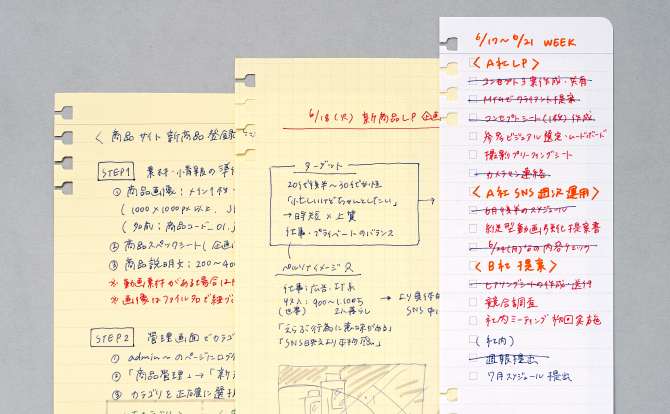 〈商品サイト新商品登録
STEP1 素材・小情報の準
① 商品画像：メイン1枚
(1000×1000px以上、J
(名前：商品コード_01.J
② 商品スペックシート(企
③ 商品説明文：200〜40
※動画素材がある場合は
※画像はファイル名で紐づ
STEP2 管理画面でカテゴ
① admin〜のページにログ
② 「商品管理」→「新
③ カテゴリを正確に選
6/18(火) 新商品LP 企画
ターゲット
20代後半〜30代女性
「忙しいけどちゃんとしたい」
→時短×上質
仕事・プライベートのバランス
ペルソナイメージ
仕事：広告、IT系
収入：900〜1,100万
(世帯) 2人暮らし
→より
SNS中
「えらぶ行為に意味がある」
「SNS映えより本物感」
6/17〜6/21 WEEK
〈A社LP〉
コンセプト3案作成・共有
MTGでクライアント提案
コンセプトシート(1枚)作成
参考ビジュアル選定・ムードボード
撮影ブリーフィングシート
カメラマン連絡
〈A社SNS週次運用〉
6月後半のスケジュール
縦型動画の強化提案書
6/24(月)なの内容チェック
〈B社提案〉
ヒアリングシートの作成・送付
競合調査
社内ミーティング 初回実施
(社内)
週報提出
7月スケジュール提出